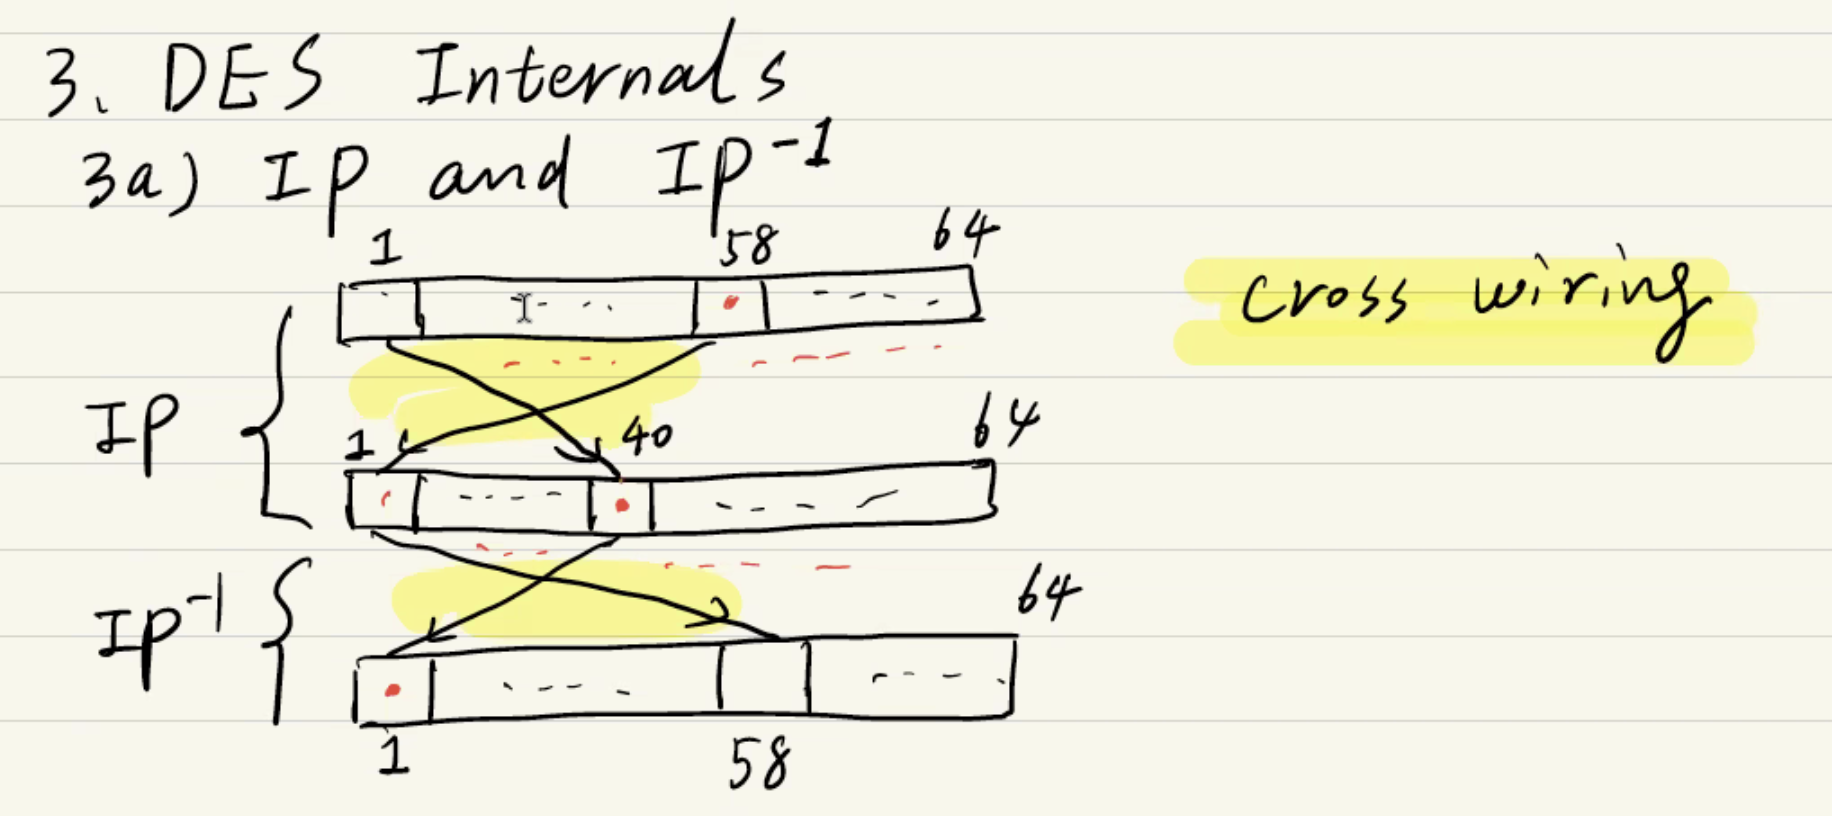 3. DES Internals
3a) IP and IP⁻¹
1 58 64
cross wiring
IP
1 40 64
IP⁻¹
64
1 58